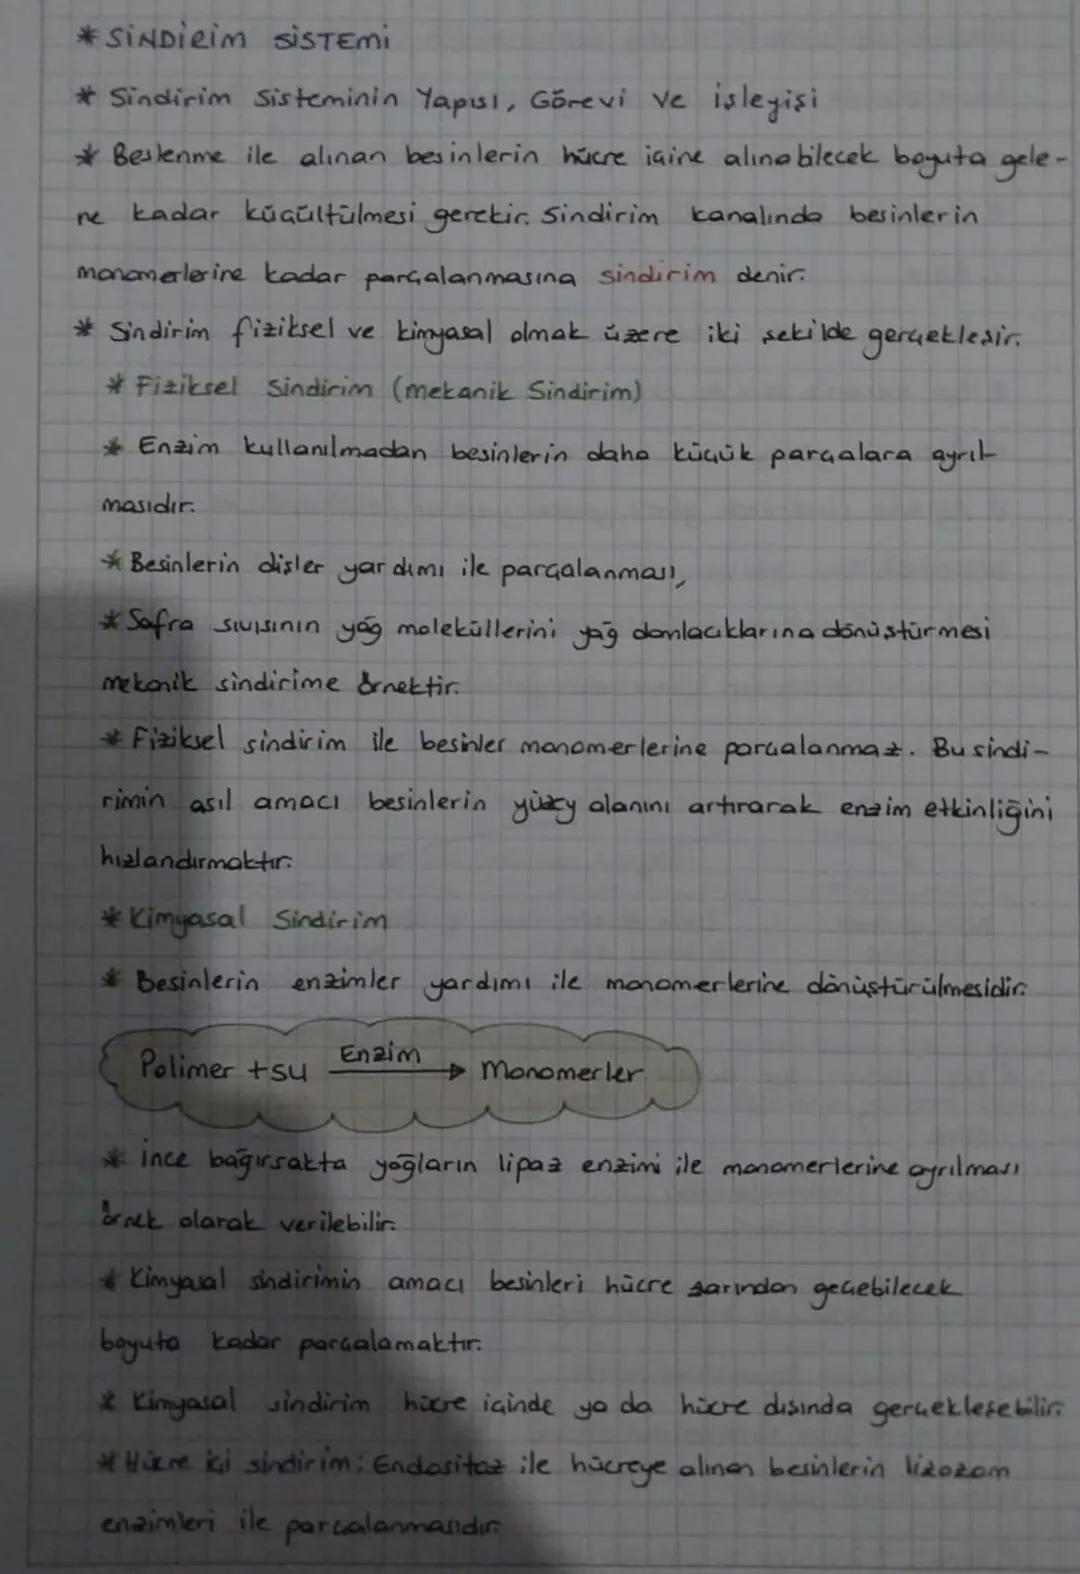 * SİNDİRİM SİSTEMİ
* Sindirim Sisteminin Yapısı, Görevi ve işleyişi
* Beslenme ile alınan besinlerin hücre içine alınabilecek boyuta gele-
ne kadar küçültülmesi gerekir. Sindirim kanalında besinlerin
monomerlerine kadar parçalanmasına sindirim denir.
* Sindirim fiziksel ve kimyasal olmak üzere iki şekilde gerçekleşir.
* Fiziksel Sindirim (mekanik Sindirim)
* Enzim kullanılmadan besinlerin daha küçük parçalara ayrıl-
masıdır.
* Besinlerin dişler yardımı ile parçalanması,
* Safra sıvısının yağ moleküllerini yağ damlacıklarına dönüştürmesi
mekanik sindirime örnektir.
* Fiziksel sindirim ile besinler monomerlerine parçalanmaz. Bu sindi-
rimin asıl amacı besinlerin yüzey alanını artırarak enzim etkinliğini
hızlandırmaktır.
* Kimyasal Sindirim
* Besinlerin enzimler yardımı ile monomerlerine dönüştürülmesidir.
Polimer + su Enzim → Monomerler
* ince bağırsakta yağların lipaz enzimi ile monomerlerine ayrılması
örnek olarak verilebilir.
* Kimyasal sindirimin amacı besinleri hücre zarından geçebilecek
boyuta kadar parçalamaktır.
* Kimyasal sindirim hücre içinde ya da hücre dışında gerçekleşebilir.
* Hücre içi sindirim: Endositoz ile hücreye alınan besinlerin lizozom
enzimleri ile parçalanmasıdır.